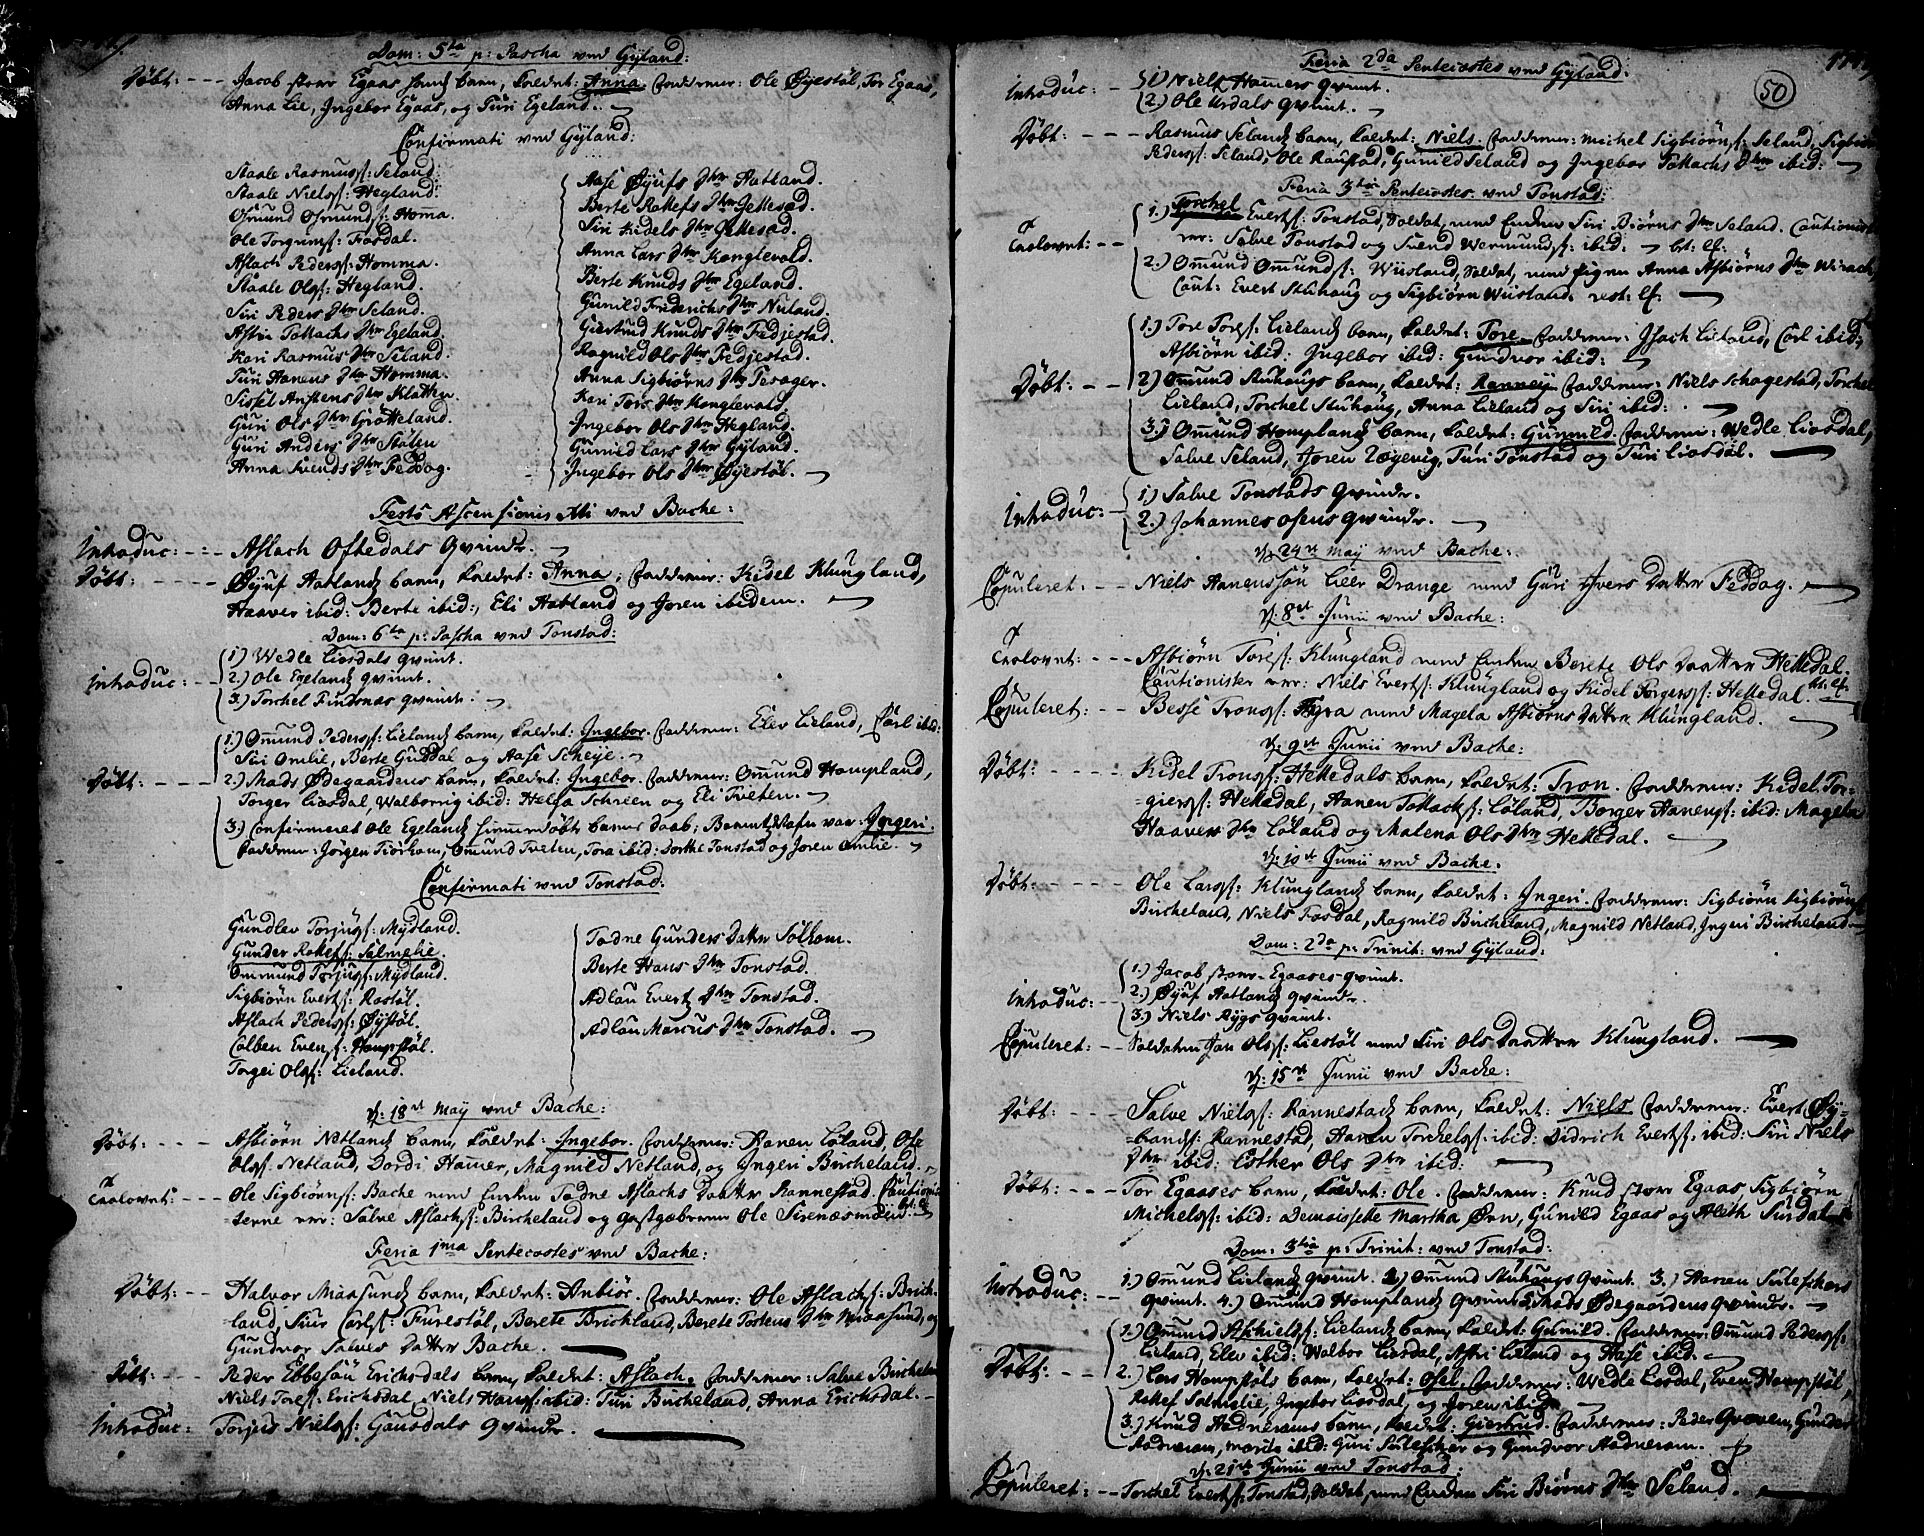 Dom: 5ta p: Pascha ved Gÿland:
Døbt: --- Jacob store Egaas barn, kaldet: Anna. Fadderne: Ole Øyestøl, Tor Egaas,
Anna Lie, Ingebor Egaas, og Turi Egeland.
Confirmati ved Gÿland:
Staale Rasmusf: Seland:
Staale Nielsf: Hegland:
Osmund Osmundsf: Homa.
Ole Torgrimsf: Fosdal.
Aslach Pedersf: Homma.
Staale Olsf: Hegland.
Siri Peders Dtter Seland.
Astri Tollachs Dtter Egeland.
Kari Rasmus Dtter Seland.
Turi Hanens Dtter Homma.
Sissel Anstens Dtter Klatten
Guri Ols Dtter Grøtteland.
Guri Anders Dtter Stølen
Anna Svends Dtter Feddog.
Aase Øyufs Dtter Hatland.
Berte Rollefs Dtter Jettesad.
Siri Kidels Dtter Jettesad.
Anna Lars Dtter Konglevold.
Berte Knuds Dtter Egeland.
Gunild Friderichs Dtter Nuland.
Giertrud Knuds Dtter Fedjestad.
Ragnild Ols Dtter Fedjestad.
Anna Sigbiørns Dtter Pesager.
Kari Tors Dtter Konglevold.
Ingebor Ols Dtter Hegland.
Gunild Lars Dtter Gÿland.
Ingebor Ols Dtter Øyestøl.
Festo Ascensionis Xti ved Bache:
Introduc: --- Aslach Oftedals Qvinde.
Døbt: ---- Øyuf Hatlands barn, kaldet: Anna; Fadderne: Kidel Klungland,
Haaver ibid: Berte ibid:, Eli Hatland og Joren ibidem.
Dom: 6ta p: Pascha ved Tonstad:
Introduc: -- 1.) Wedle Liosdals qvinde.
2.) Ole Egelands qvinde.
3.) Torchel Fintsnas qvinde.
Døbt: --- 1.) Omund Pedersf: Lielands barn, kaldet: Ingebor. Fadderne: Elev Lieland, Carl ibid:
Siri Omlie, Berte Gusdal og Aase Scheÿe.
2.) Mads Øegaardens barn, kaldet: Ingebor. Fadderne: Omund Hompland,
Torger Liosdal, Walborrig ibid: Helga Schreen og Eli Tveten.
3.) Confirmeret Ole Egelands hiemmedøbte barns Daab; Barnets Nafn var: Ingeri.
Fadderne: Jørgen Tiørhom, Omund Tveten, Tora ibid: Dorthe Tonstad og Joren Omlie.
Confirmati ved Tonstad:
Gundlev Torjusf: Mydland.
Gunder Rollefsf: Salmelie.
Ommund Torjusf: Mydland.
Sigbiørn Evertsf: Rostøl.
Aslach Pedersf: Øÿstøl.
Colben Evensf: Hompstøl.
Torgei Olsf: Lieland.
Todne Gunders Datter Solhom.
Berte Hans Dtter Tonstad.
Adlau Everts Dtter Tonstad.
Adlau Marcus Dtter Tonstad.
d: 18de May ved Bache:
Døbt: ---- Asbiørn Netlands barn, kaldet: Ingebor. Fadderne: Hanen Løland, Ole
Olsf. Netland, Dordi Hamer, Magnild Netland, og Ingeri Bircheland.
Trolovet: --- Ole Sigbiørnsf: Bache med Enken Todne Aslachs Daatter Rannestad. Cautionis-
terne ere: Salve Aslachsf: Bircheland og gastgæberen Ole Sirenæsmoen.
Feria 1ma Pentecostes ved Bache:
Døbt: -- Halvor Maasunds barn, kaldet: Anbiør. Fadderne: Ole Aslachsf: Birch-
land, Siur Carlsf: Furestøl, Berete Brichland, Berete Torkens Dtter Maasund, og
Gundvor Salves Datter Bache.
Døbt: --- Peder Ebbesøn Ericksdals barn, kaldet: Aslach. Fadderne: Salve Bircheland
Niels Toresf: Ericksdal, Niels Hansf: ibid: Turi Bircheland, Anna Ericksdal.
Introduc: Torjus Nielsf: Gausdals qvinde.
50
Feria 2da Pentecostes ved Gÿland:
Introduc: -- 1) Niels Hamers qvinde.
2.) Ole Urdals Qvinde.
Døbt: --- Rasmus Selands barn, kaldet: Niels. Fadderne: Michel Sigbiørnsf: Seland, Sigbiørn
Pedersf: Seland, Ole Raustad, Gunild Seland og Ingebor Tollachs Dtter ibid:
Feria 3tia Pentecostes. ved Tonstad:
Trolovet: -- 1.) Torchel Evertsf: Tonstad, Soldat, med Enken Siri Biørns Dtter Seland. Cautionist
ere: Salve Tonstad og Svend Wermundsf: ibid:
2.) Omund Omundsf: Wiisland, Soldat, med Pigen Anna Asbiørns Dtter Wirach,
Caut: Evert Stuhaug og Sigbiørn Wiisland. rest:
Døbt: -- 1.) Tore Toresf: Lielands barn, kaldet: Tore. Fadderne: Isach Lieland, Carl ibid:,
Asbiørn ibid: Ingebor ibid: Gundvor ibid:
2) Omund Stuhaugs barn, kaldet: Ranneÿ. Fadderne: Niels Schogestad, Torchel
Lieland, Torchel Stuhaug, Anna Lieland og Siri ibid:
3.) Omund Homplands barn, kaldet: Gunnild. Fadderne: Wedle Liosdal,
Salve Seland, Joren Øÿgevig, Turi Tonstad og Turi Liosdal.
Introduc: - 1.) Salve Tonstads Qvinde.
2.) Johannes Osens qvinde.
d: 24de May ved Bache:
Copuleret: -- Niels Hanenssøn Leer Drange med Guri Ivers Datter Feddog.
d: 8de Junii ved Bache:
Trolovet: --- Asbiørn Toresf: Klungland med Enken Berete Ols Daatter Helledal.
Cautionister ere: Niels Evertsf: Klungland og Kidel Torgersf: Helledal.
Copuleret: -- Besse Tronsf: Fyra med Magela Asbiørns Datter Klungland.
d: 9de Junii ved Bache:
Døbt: ---- Kidel Tronsf: Helledals barn, kaldet: Tron. Fadderne: Kidel Tor-
giersf: Helledal, Hanen Tollachsf: Løland, Borger Hanensf: ibid: Magela
Haavers Dtter Løland og Malena Ols Dtter Helledal.
d: 10de Junii ved Bache.
Døbt: ---- Ole Larsf: Klunglands barn, kaldet: Ingeri. Fadderne: Sigbiørn Sigbiørnsf
Bircheland, Niels Fosdal, Ragnild Bircheland, Magnild Netland, Ingeri Bircheland
Dom: 2da p: Trinit: ved Gÿland:
Introduc: -- 1.) Jacob store Egaases qvinde.
2.) Øyuf Hatlands qvinde.
3.) Niels Rygs qvinde.
Copuleret: -- Soldaten Jan Olsf: Liestøl med Siri Ols Daatter Klungland.
d: 15de Junii ved Bache:
Døbt: ---- Salve Nielsf: Rannestads barn, kaldet: Niels. Fadderne: Evert Øÿ-
bandsf: Rannestad, Hanen Torchelsf: ibid: Didrich Evertsf: ibid: Siri Niels
Dtter ibid: Esther Ols Dtter ibid:
Døbt: --- Tor Egaases barn, kaldet: Ole. Fadderne: Knud store Egaas, Sigbiørn
Michelsf: ibid: Demoiselle Martha Ørn, Gunild Egaas og Aleth Surdal
Dom: 3tia p: Trinit: ved Tonstad:
Introduc: -- 1.) Omund Lielands Qvinde. 2.) Omund Stuhaugs Qvinde. 3.) Hanen Sulefchers
Qvinde. 4.) Omund Homplands Qvinde. 5. Mads Øegaardens qvinde.
Døbt: --- 1.) Omund Aschieldsf: Lielands barn, kaldet: Gunild. Fadderne: Omund Pedersf:
Lieland, Elev ibid: Walbor Liosdal, Astri Lieland og Aase ibid.
2.) Lars Hompstøls barn, kaldet: Osel. Fadderne: Wedle Liosdal, Even Hompstøl,
Rollef Salmelie, Ingebor Liosdal, og Joren ibidem
3.) Knud Hadnerams barn, kaldet: Giertrud. Fadderne: Peder Qveven, Gunder
Hadneram, Marite ibid: Guri Sulefcher og Gundvor Hadneram.
d: 21de Junii ved Tonstad:
Copuleret: -- Torchel Evertsf: Tonstad, Soldat, med Enken Siri Biørns Dtter Seland.